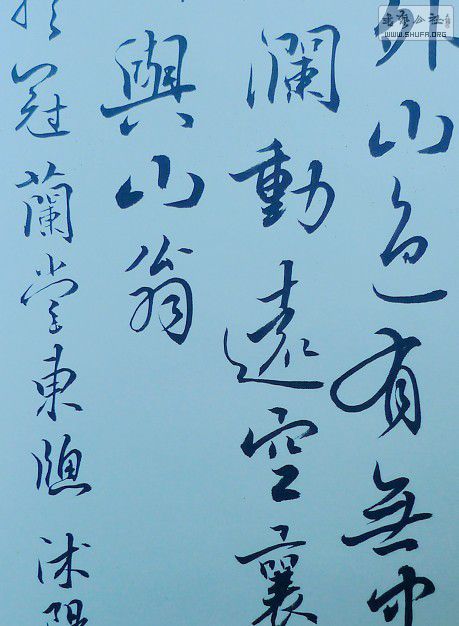 外山色有無中
瀾動遠空襄
與山翁
於冠蘭堂東牕沭陽
書法公社
WWW.SHUFA.ORG